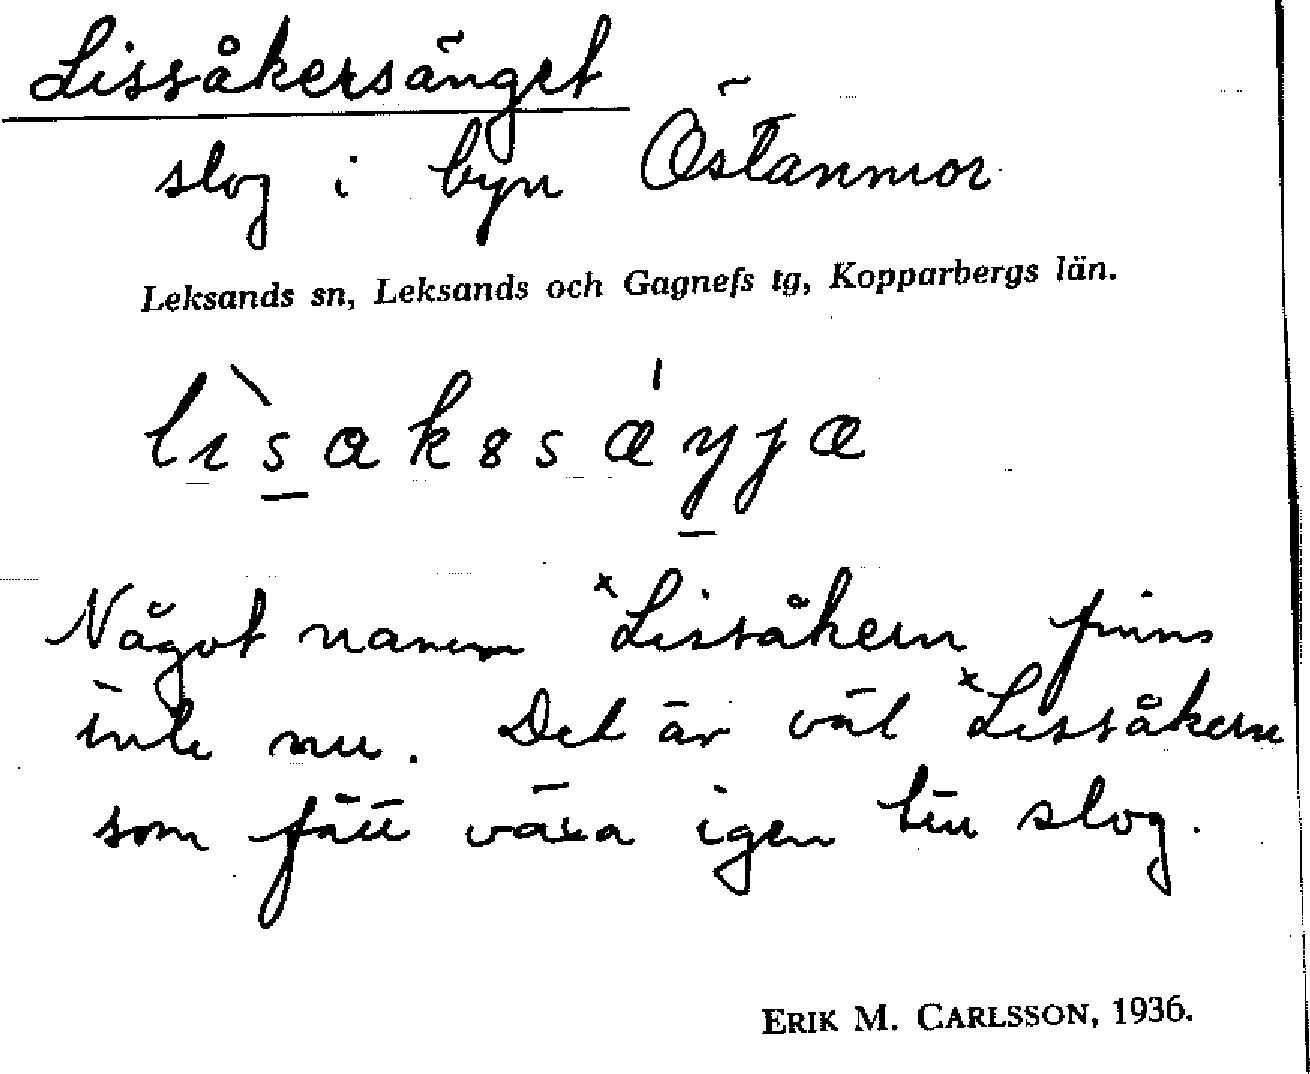 Lissåkersänget
slog i byn Östanmor
Leksands sn, Leksands och Gagnefs tg, Kopparbergs län.
Något namn *Lissåkern finns
inte nu. Det är väl *Lissåkern
som fått växa igen till slog.
ERIK M. CARLSSON, 1936.